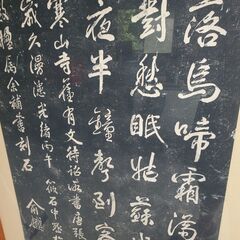 落烏啼霜滿
對愁眠姑蘇
夜半鐘聲到
寒山寺舊有文待詔所書唐張
歲久漫漶光緒丙午筱石中丞於
楹屬余補書刻石
俞樾